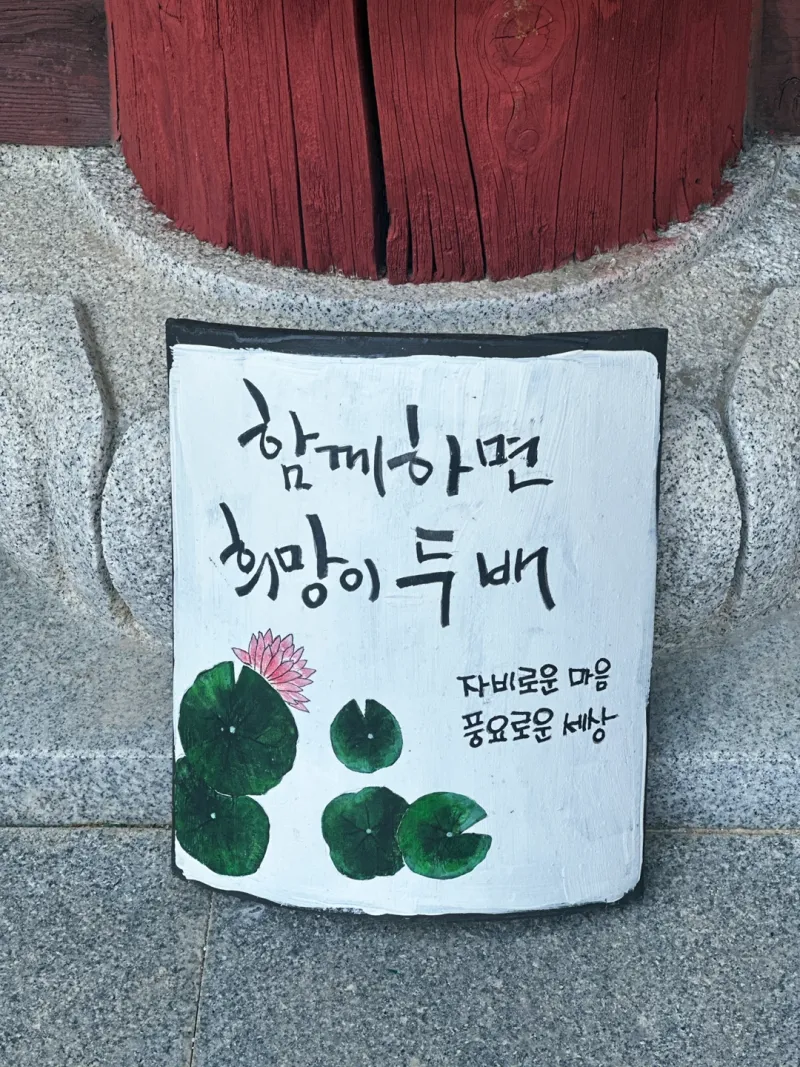 함께하면
희망이 두배
자비로운 마음
풍요로운 세상